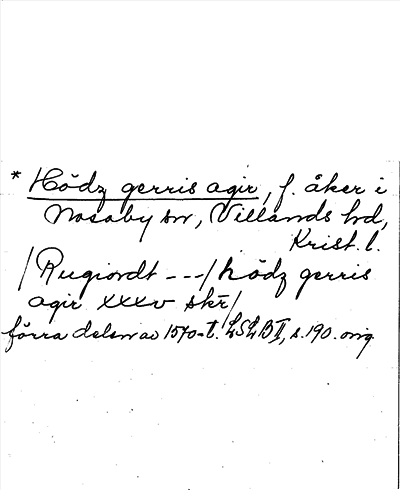 * Hödz gerris agir, f. åker i
Nosaby sn, Villands hd,
Krist. l.
/Rugiordt ---/ hödz gerris
agir xxxv skr̄/
förra delen av 1570-t. LSLB II, s. 190. orig.